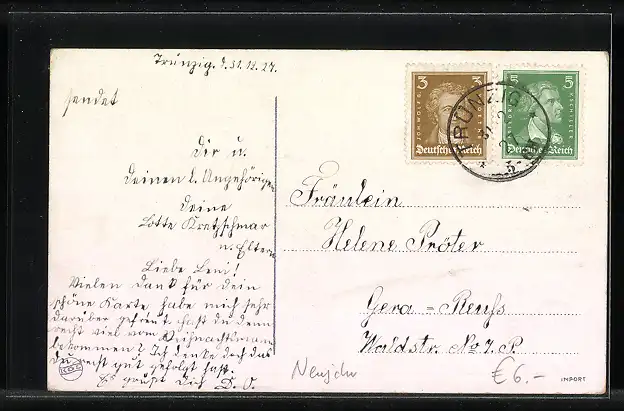 Trünzig. d. 31. 12. 27.
sendet
Dir u.
Deinen l. Angehörigen
Deine
Lotte Kretzschmar
u. Eltern
Liebe Leni!
Vielen Dank für dein
schöne Karte, habe mich sehr
darüber gefreut. Hast du denn
recht viel vom Weihnachtsmann
bekommen? Ich denke doch das
du recht gut gefolgt hast.
Es grüßt dich D. O.
3 3
JOH. WOLFG.
Deutsches Reich
5 5
FRIEDRICH V. SCHILLER
Deutsches Reich
TRÜNZIG
Fräulein
Helene Pröter
Gera = Reuß
Waldstr. No 7. P.
Neujahr
€ 6.-
IMPORT